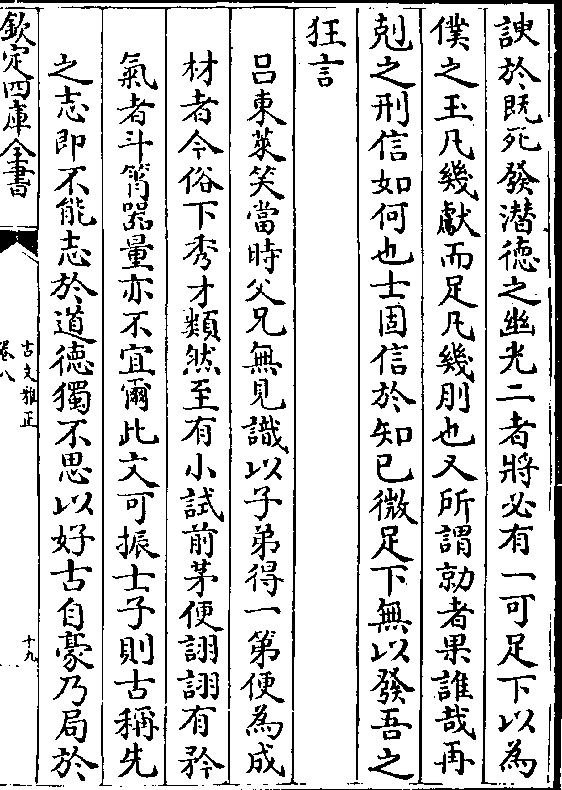 諛於既死發潛德之幽光二者將必有一可足下以為
僕之玉凡幾獻而足凡幾刖也又所謂勍者果誰哉再
剋之刑信如何也士固信於知已微足下無以發吾之
狂言
呂東萊笑當時父兄無見識以子弟得一第便為成
材者今俗下秀才類然至有小試前茅便詡詡有矜
氣者斗筲器量亦不宜爾此文可振士子則古稱先
之志即不能志於道德獨不思以好古自豪乃局於
欽定四庫全書
古文雅正
卷八
十九